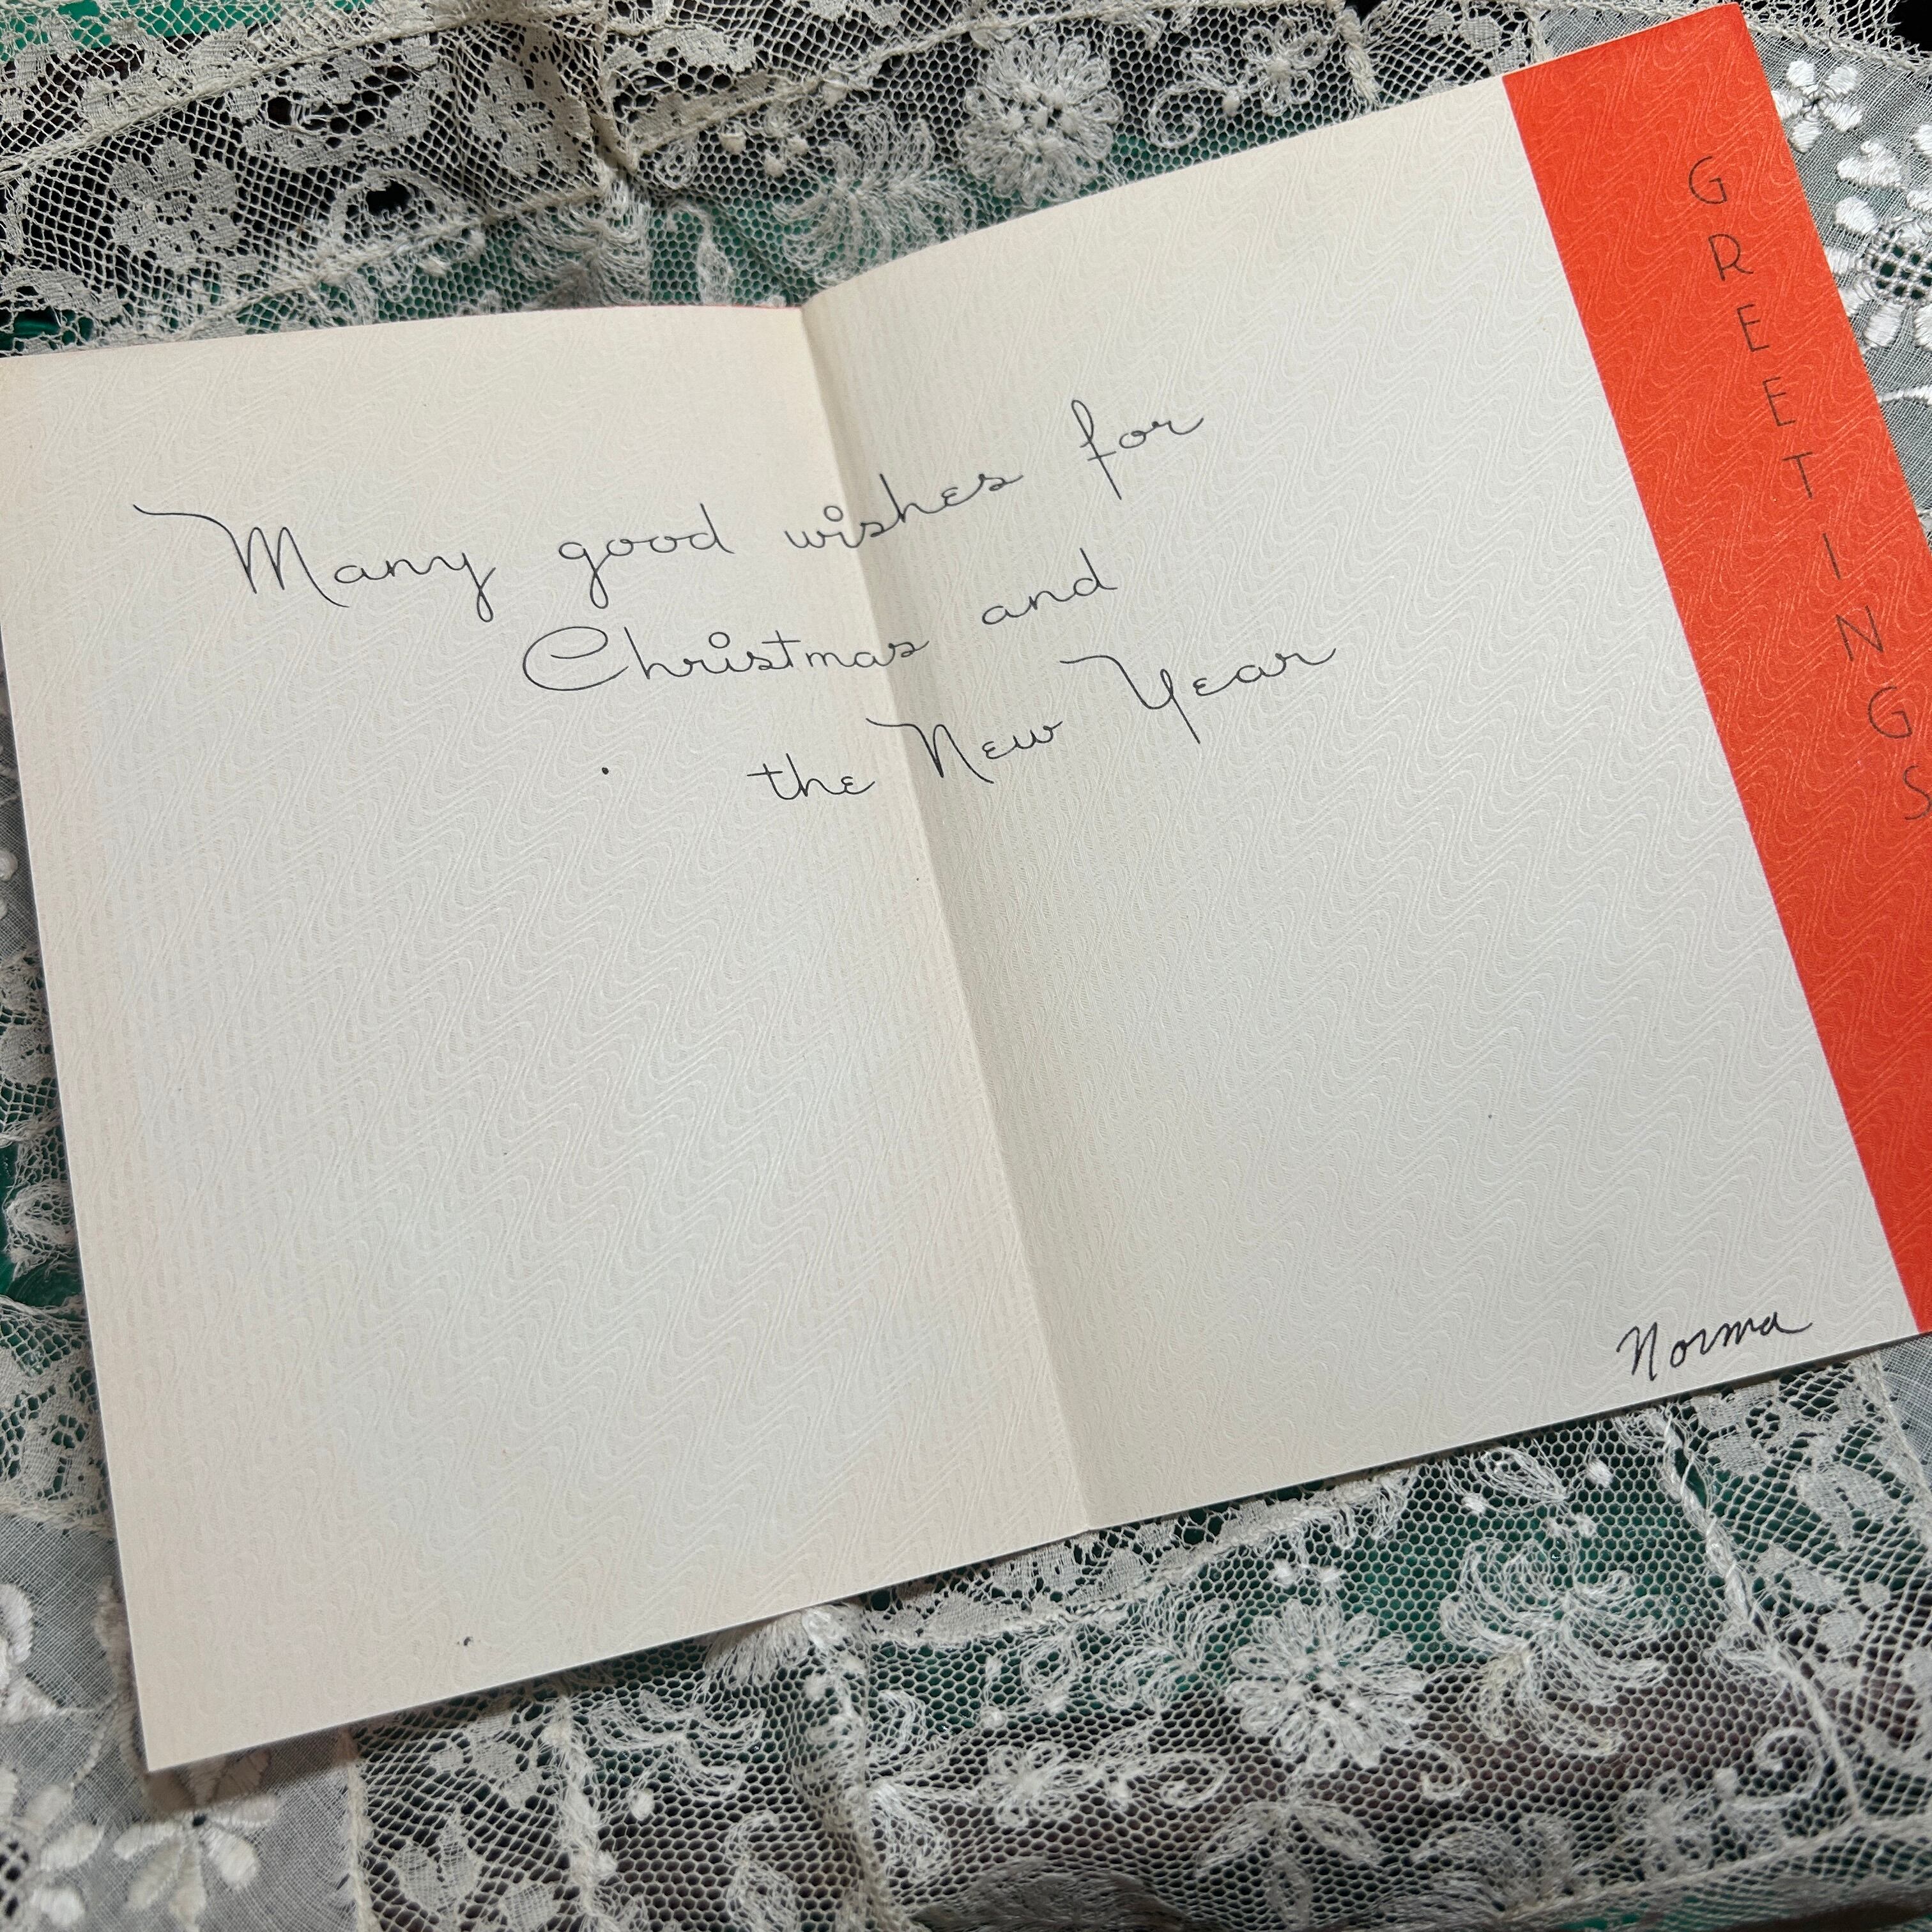 Many good wishes for
Christmas and
the New Year
GREETINGS
Norma